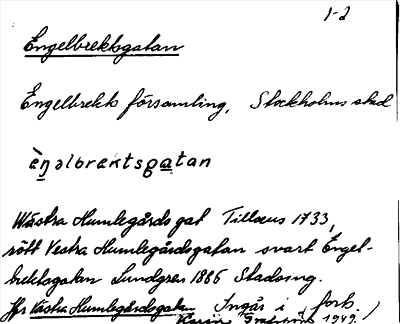 1-2
Engelbrektsgatan
Engelbrekts församling, Stockholms stad
èŋəlbrɛktsgatan
Wästra Humlegårds gat Tillæus 1733,
rött Vestra Humlegårdsgatan svart Engel-
brektsgatan Lundgren 1885 Stadsing.
Jfr Västra Humlegårdsgatan Ingår i förb.
Karin 1949.)